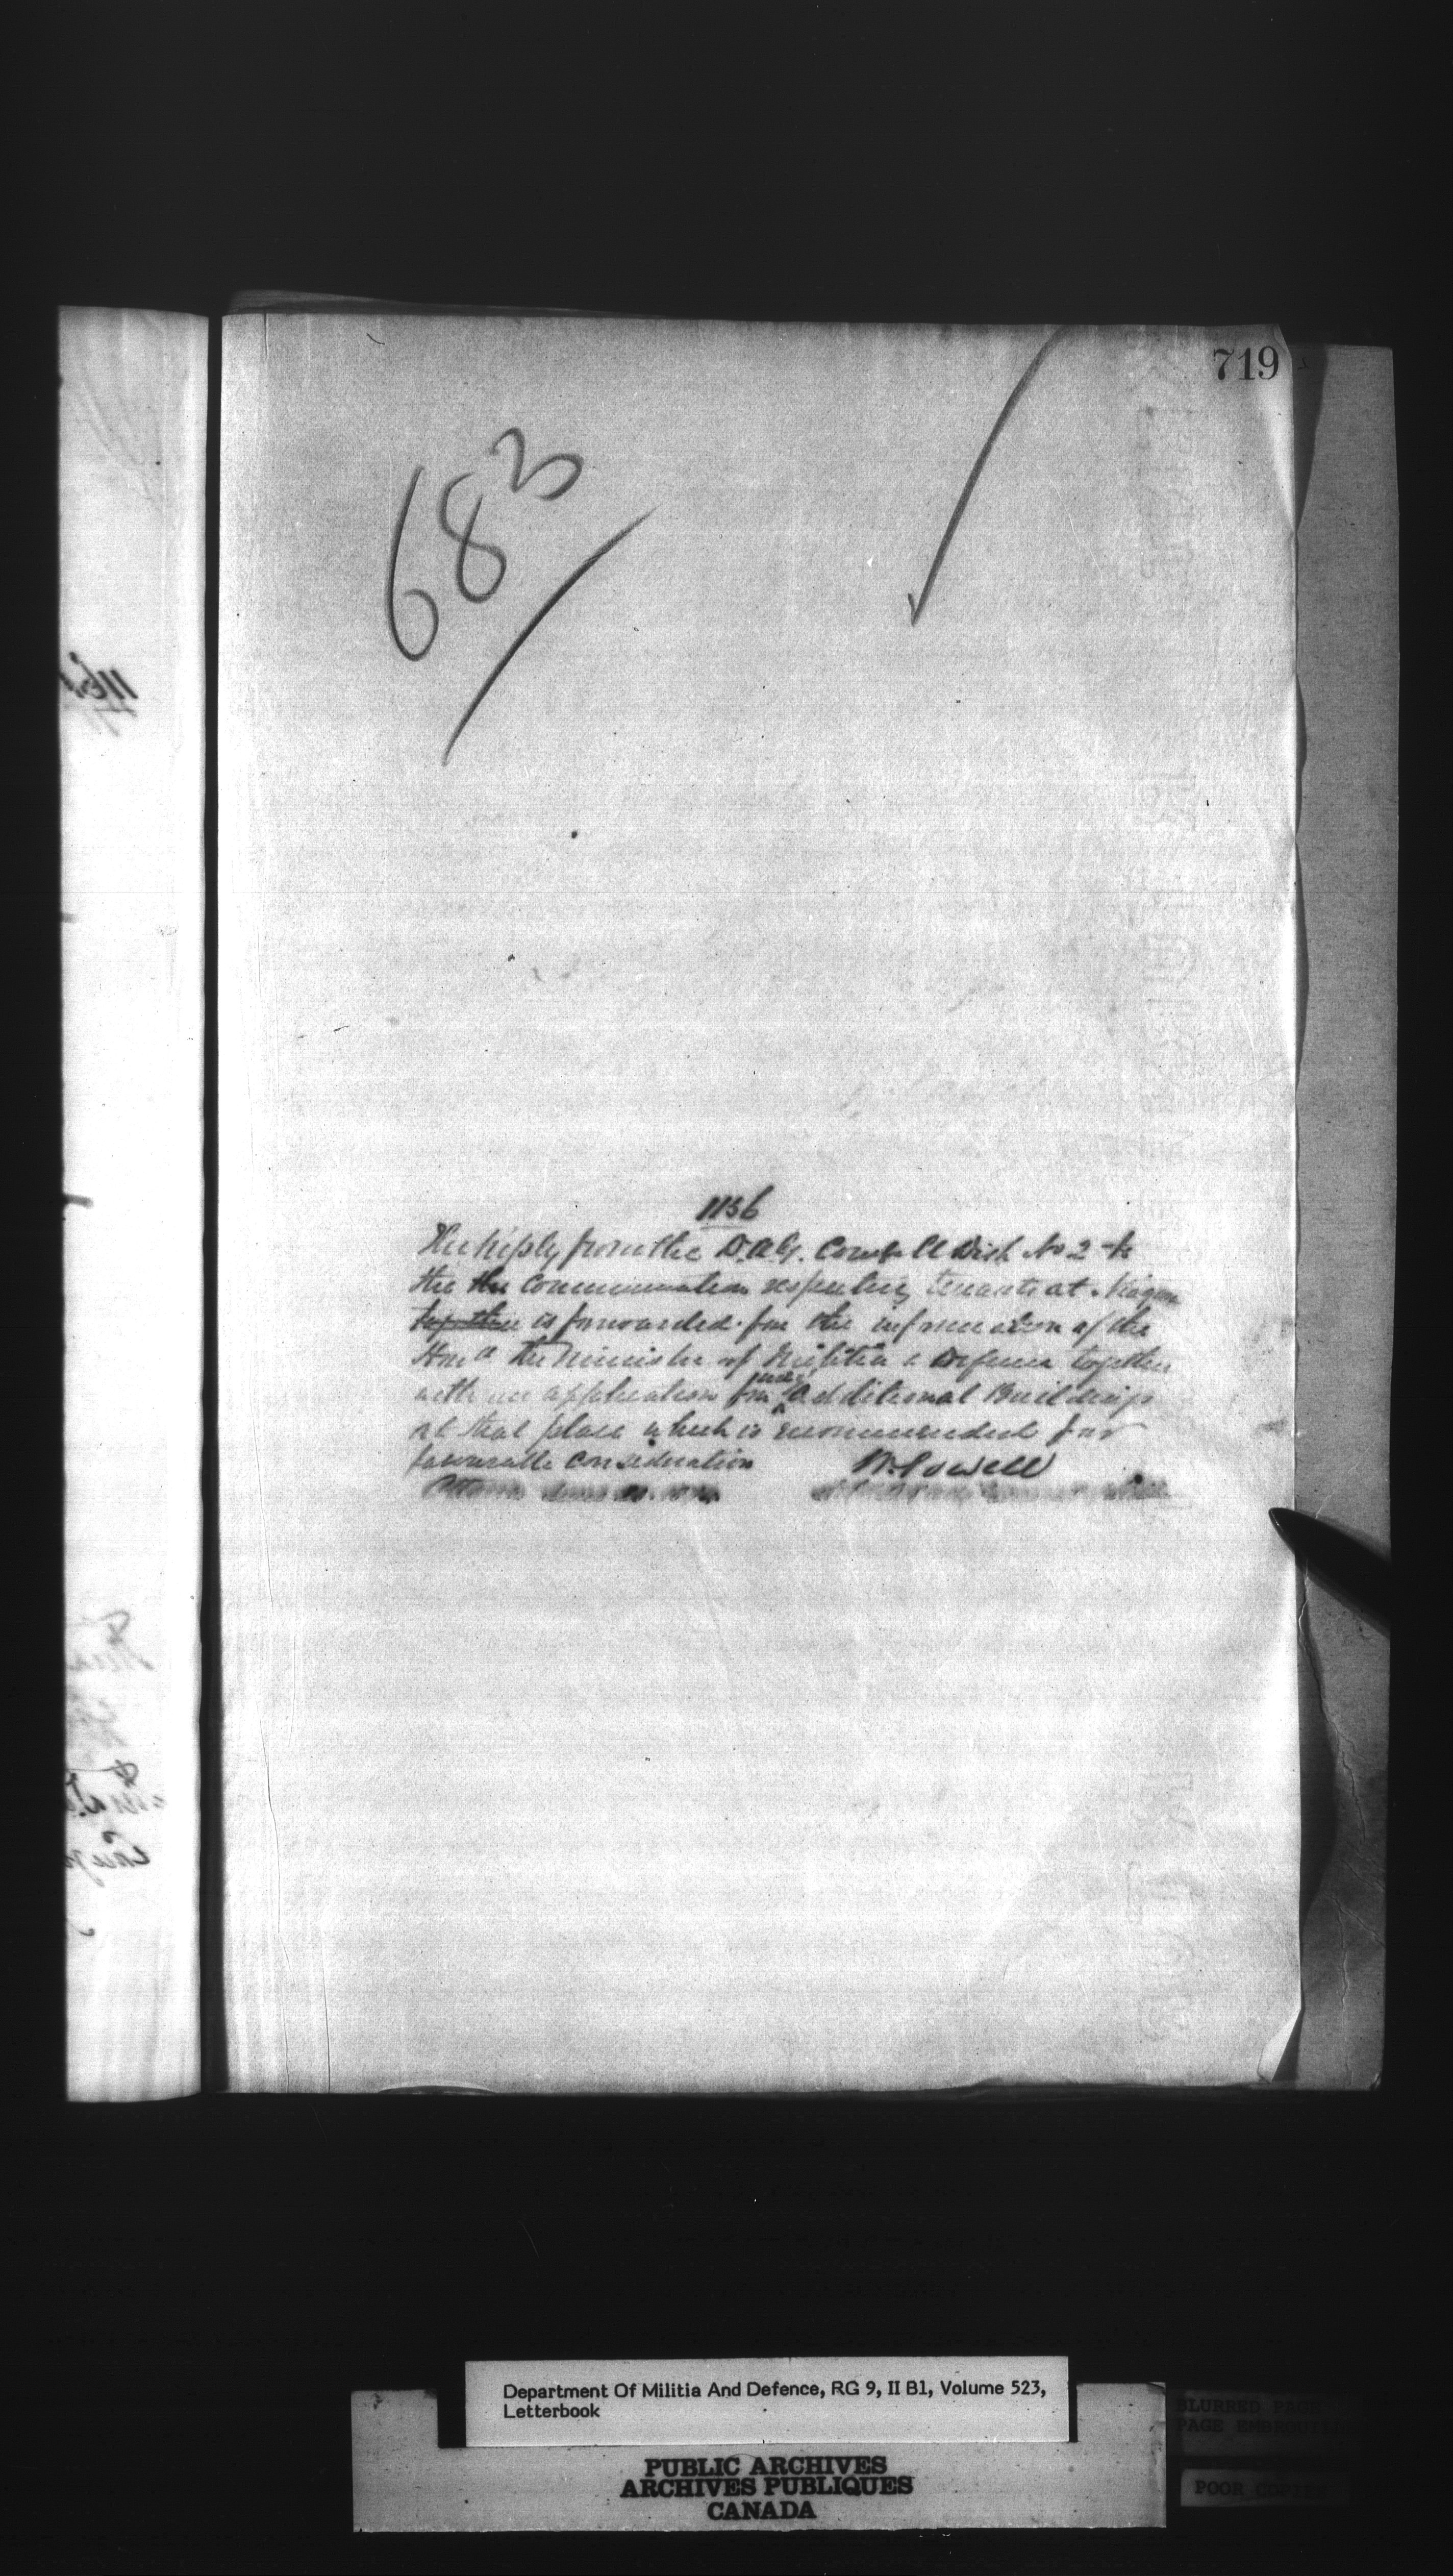 719
683
1136
The Reply from the D.A.G. Comdg Mil Dist No 2 to
the the Communication respecting tenants at Niagara
together is forwarded for the information of the
Honble the Minister of Militia & Defence together
with an application for additional Buildings
at that place which is recommended for
favourable consideration W. Powell
Ottawa
Department Of Militia And Defence, RG 9, II B1, Volume 523,
Letterbook
PUBLIC ARCHIVES
ARCHIVES PUBLIQUES
CANADA
BLURRED PAGE
PAGE EMBROUILLEE
POOR COPIE